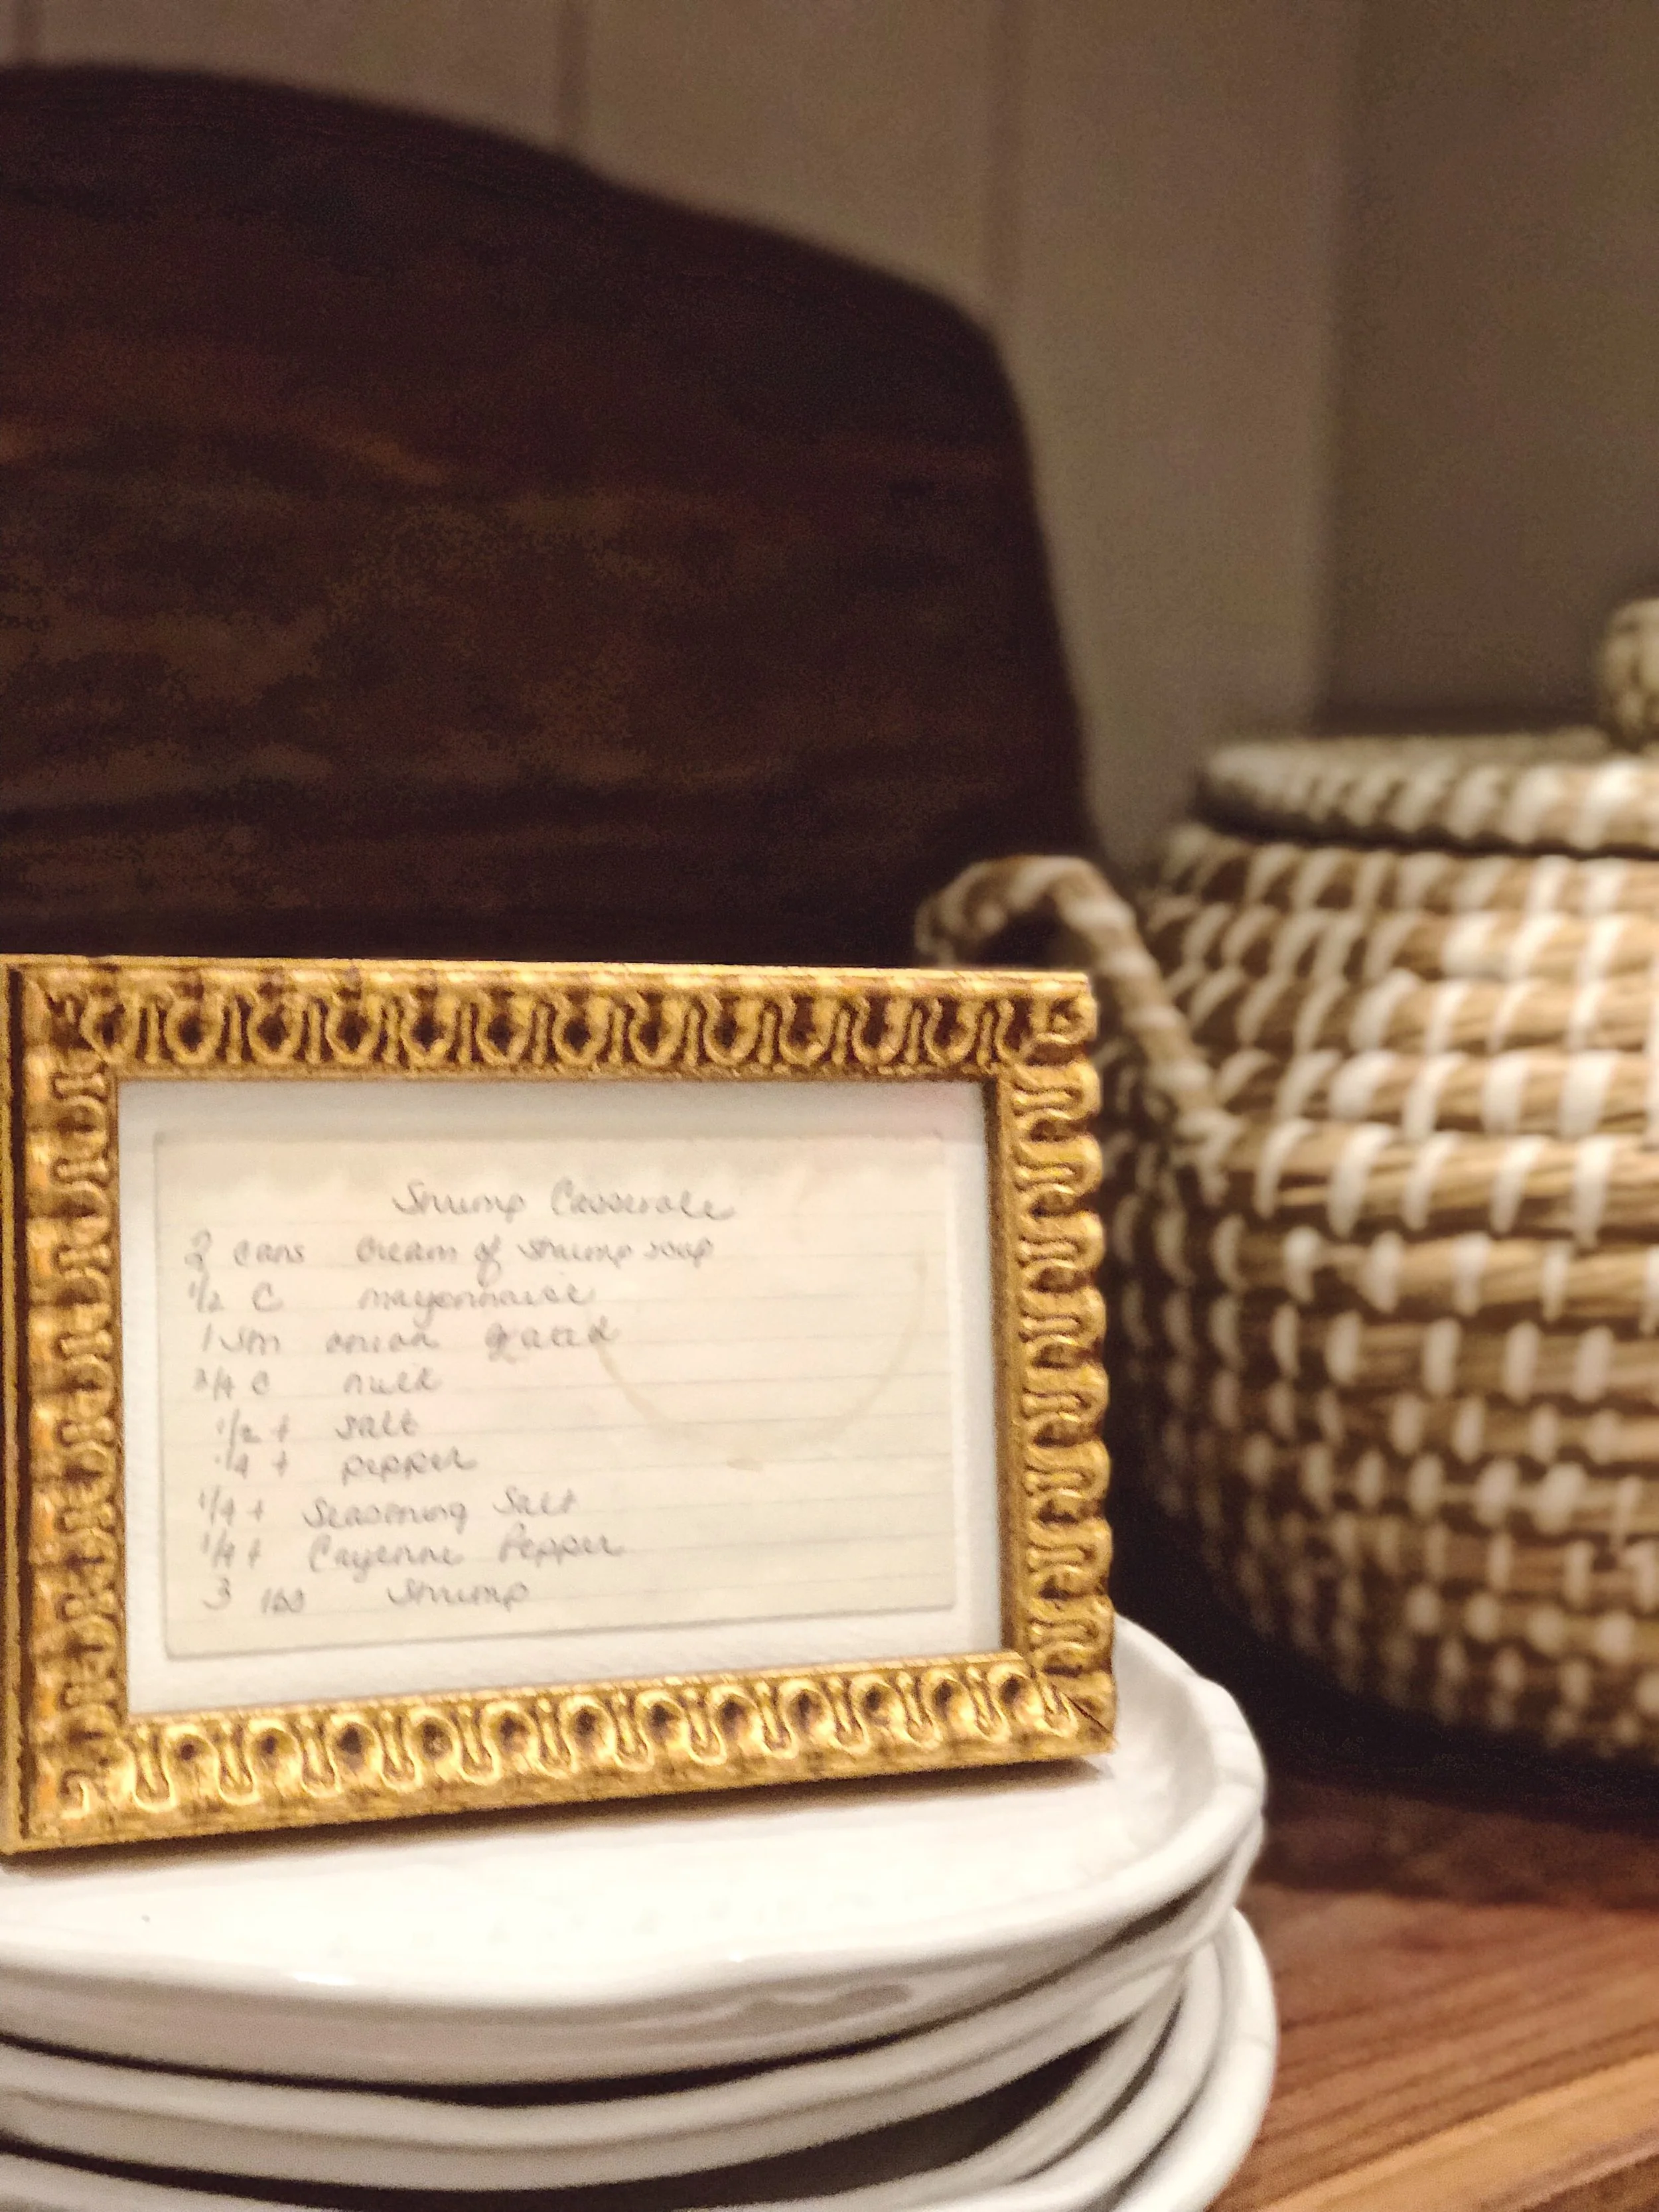 Shrimp Casserole
2 cans cream of shrimp soup
1/2 C mayonnaise
1 sm onion grated
3/4 C milk
1/2 t salt
1/4 t pepper
1/4 t Seasoning Salt
1/4 t Cayenne Pepper
3 lbs Shrimp